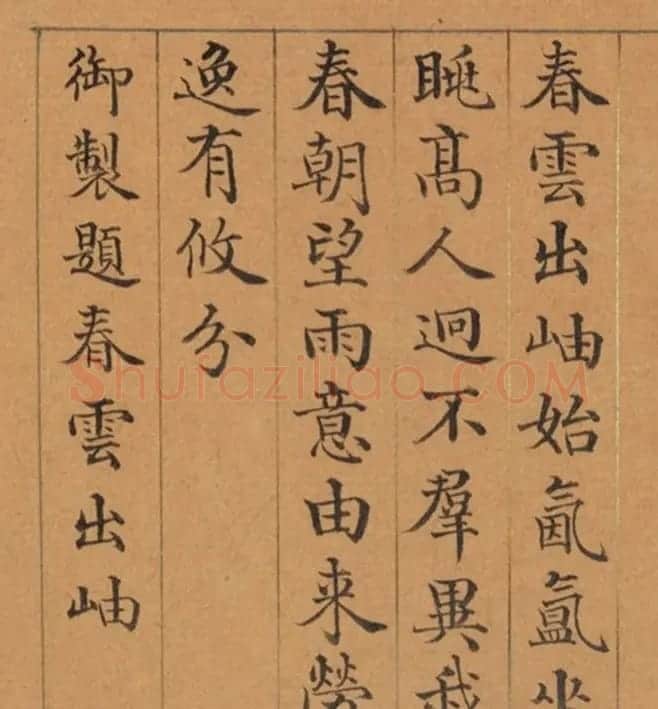 春雲出岫始氤氳坐
眺髙人迥不羣異哉
春朝望雨意由来勞
逸有攸分
御製題春雲出岫
Shufaziliao.COM